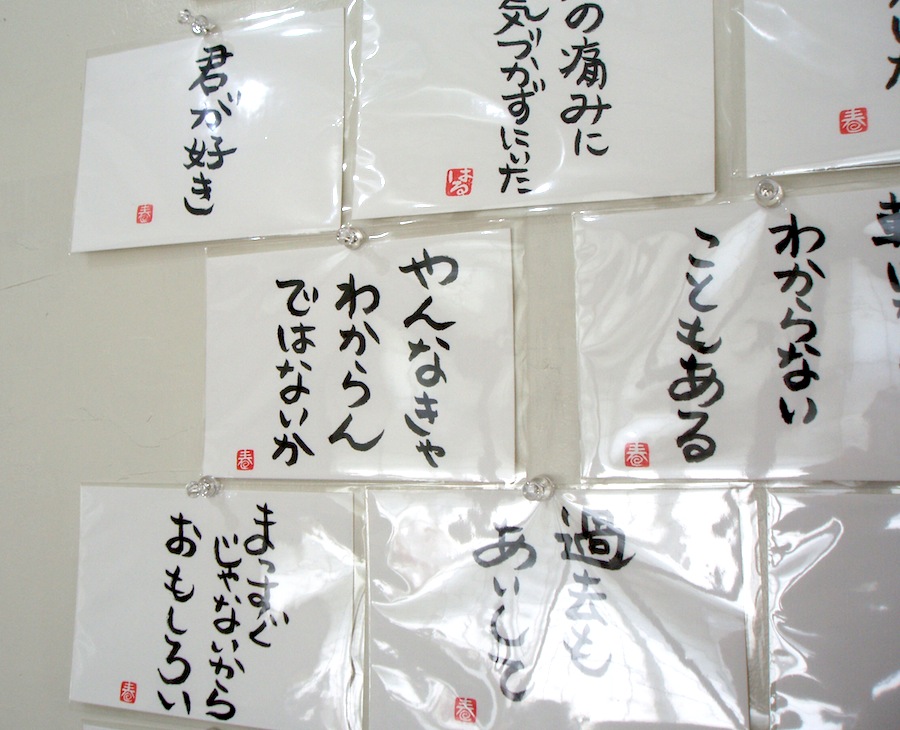 君が好き
春
の痛みに
気づかずにいた
はる
春
やんなきゃ
わからん
ではないか
春
わからない
こともある
春
まっすぐ
じゃないから
おもしろい
春
過去も
あいして
春